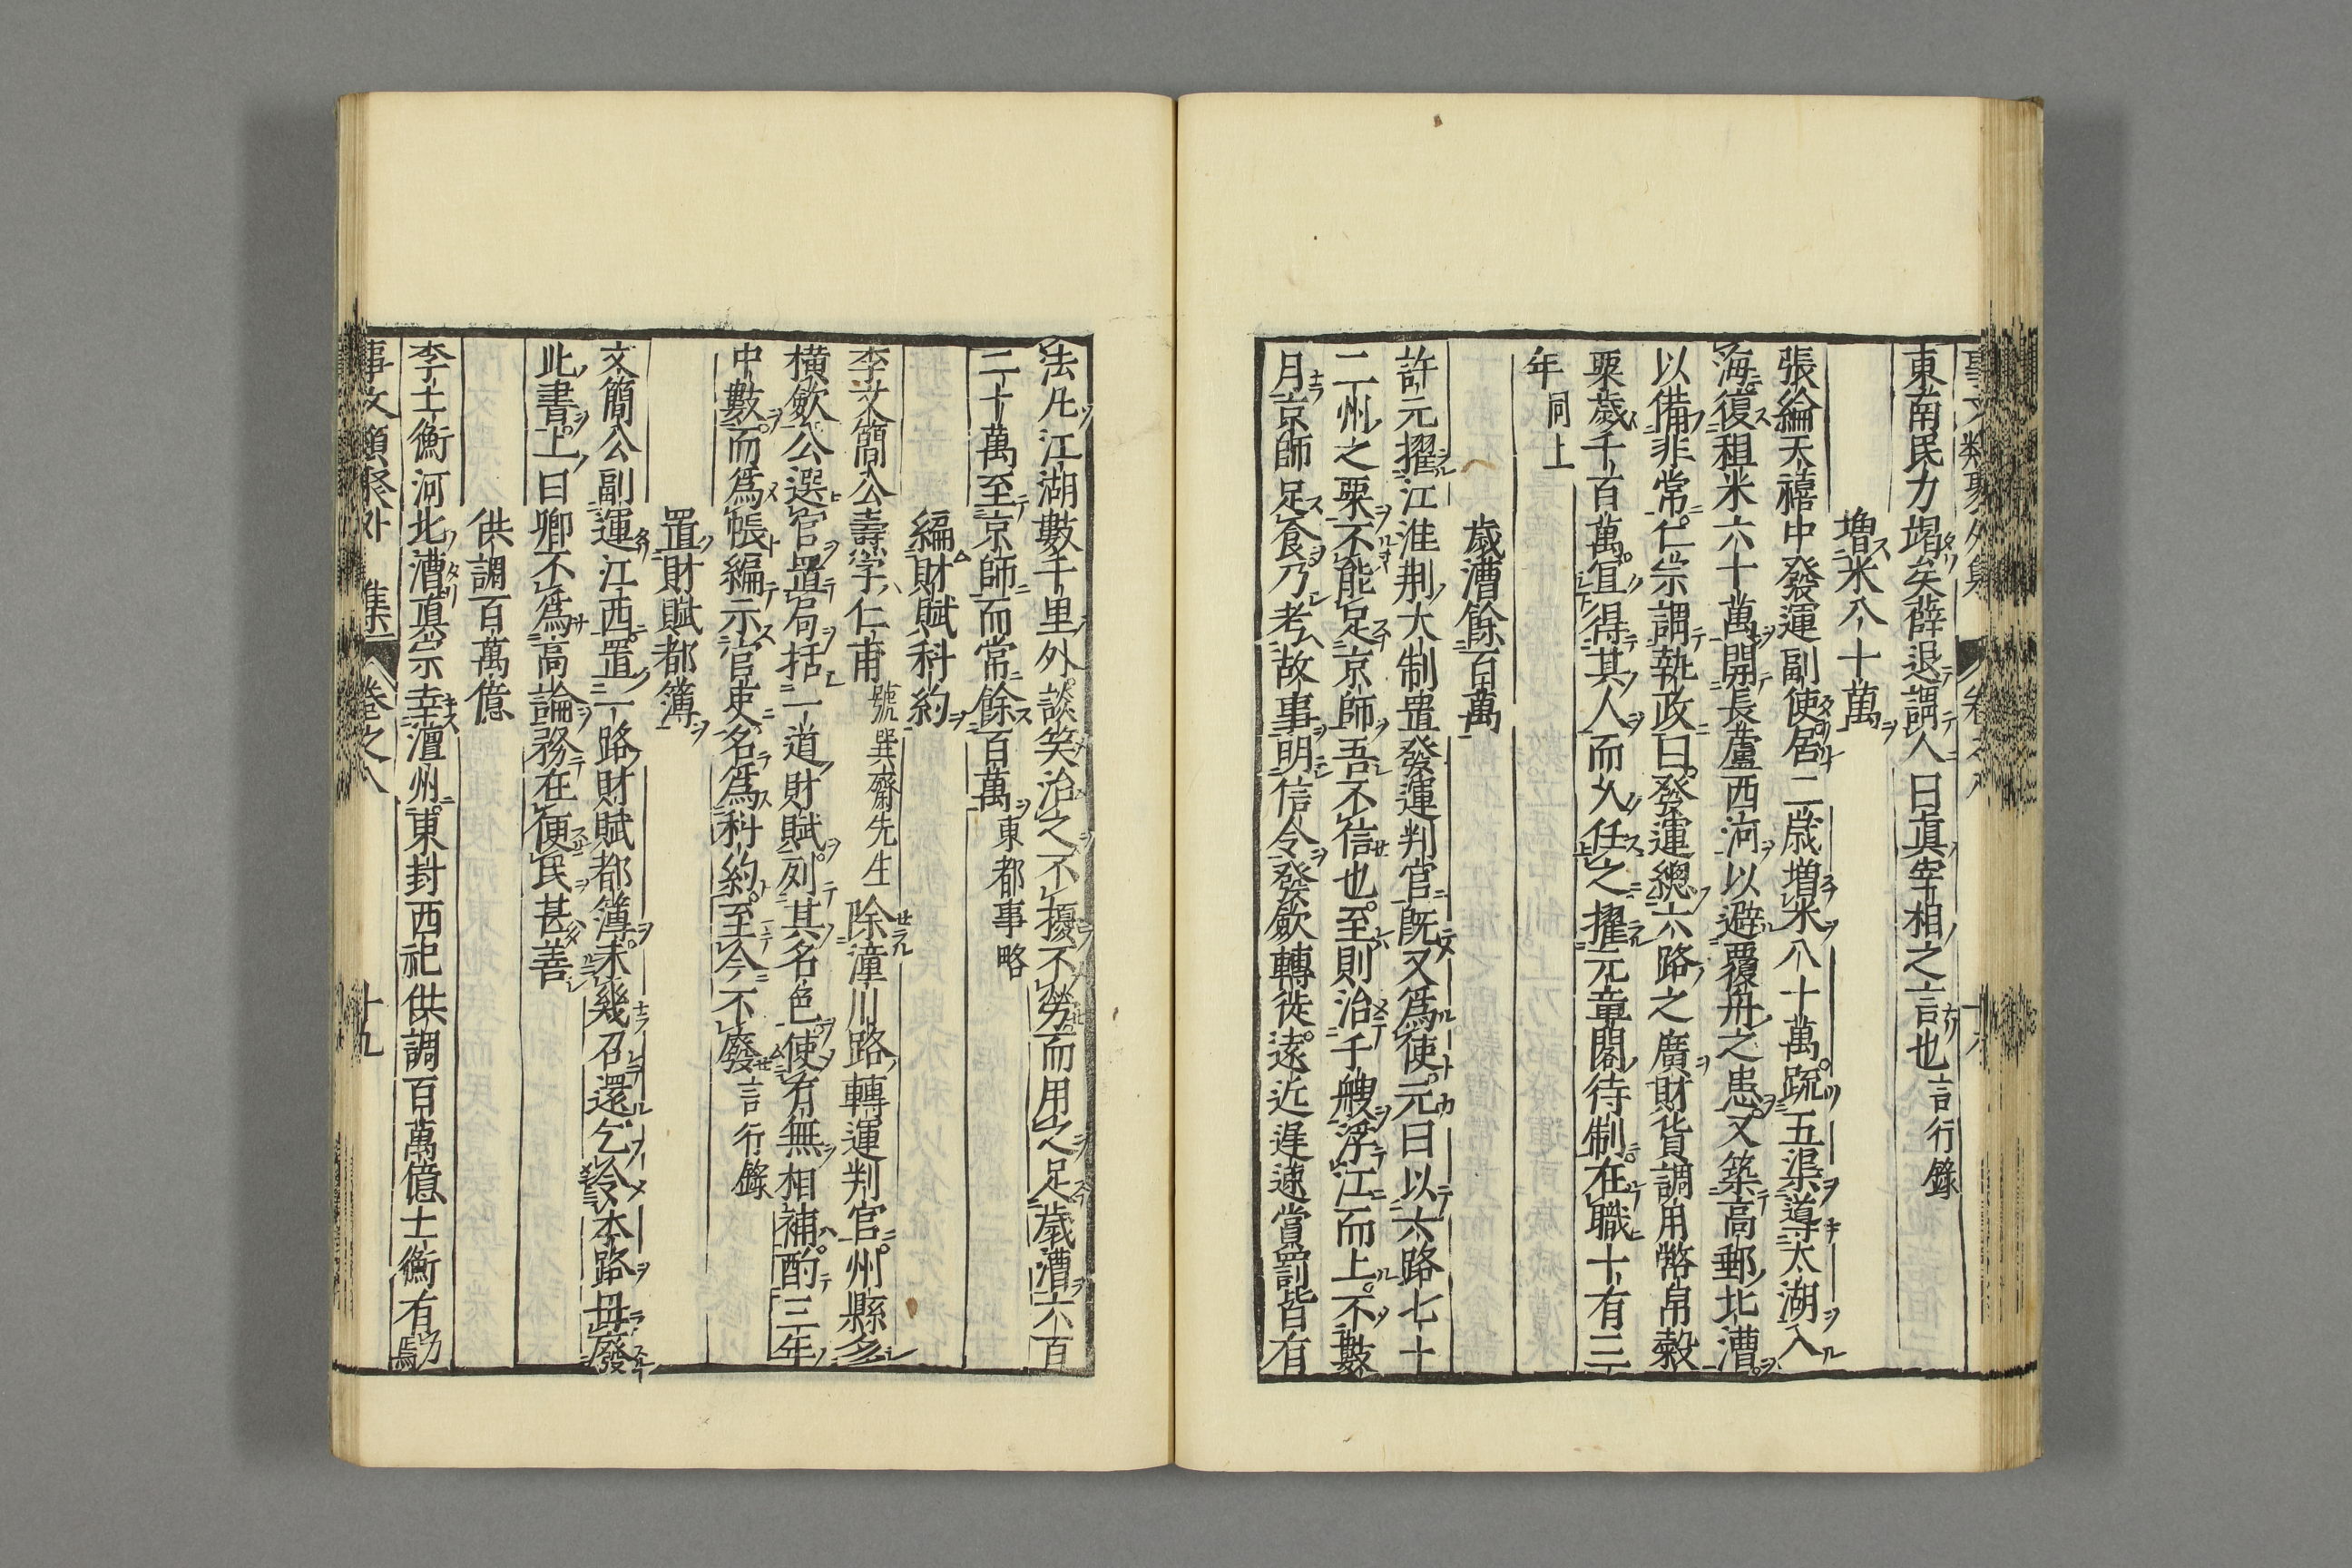 東南民力竭矣薛退謂人曰真宰相之言也言行錄
増米八十萬
張綸天禧中發運副使居二歳増米八十萬疏五渠導太湖入
海復租米六十萬開長蘆西河以避覆舟之患又築高郵北漕
以備非常仁宗謂執政曰發運總六路之廣財貨調用幣帛榖
粟歳千百萬宜得其人而久任之擢元章閣待制在職十有三
年同上
歳漕餘百萬
許元擢江淮荆大制置發運判官既又爲使元曰以六路七十
二州之粟不能足京師吾不信也至則治千艘浮江而上不數
月京師足食乃考故事明信令發歛轉徙遠近遅速賞罰皆有
法凡江湖數千里外談笑治之不擾不勞而用之足歳漕六百
二十萬至京師而常餘百萬東都事略
編財賦科約
李文簡公壽字仁甫號巽齋先生除潼川路轉運判官州縣多
横歛公選官置局括一道財賦列其名色使有無相補酌三年
中數而爲帳編示官吏名爲科約至今不廢言行錄
置財賦都簿
文簡公副運江西置一路財賦都簿未幾召還乞令本路毋廢
此書上曰卿不爲高論務在便民甚善
供調百萬億
李士衡河北漕真宗幸澶州東封西祀供調百萬億士衡有力焉
事文類聚外集 卷之八 十九